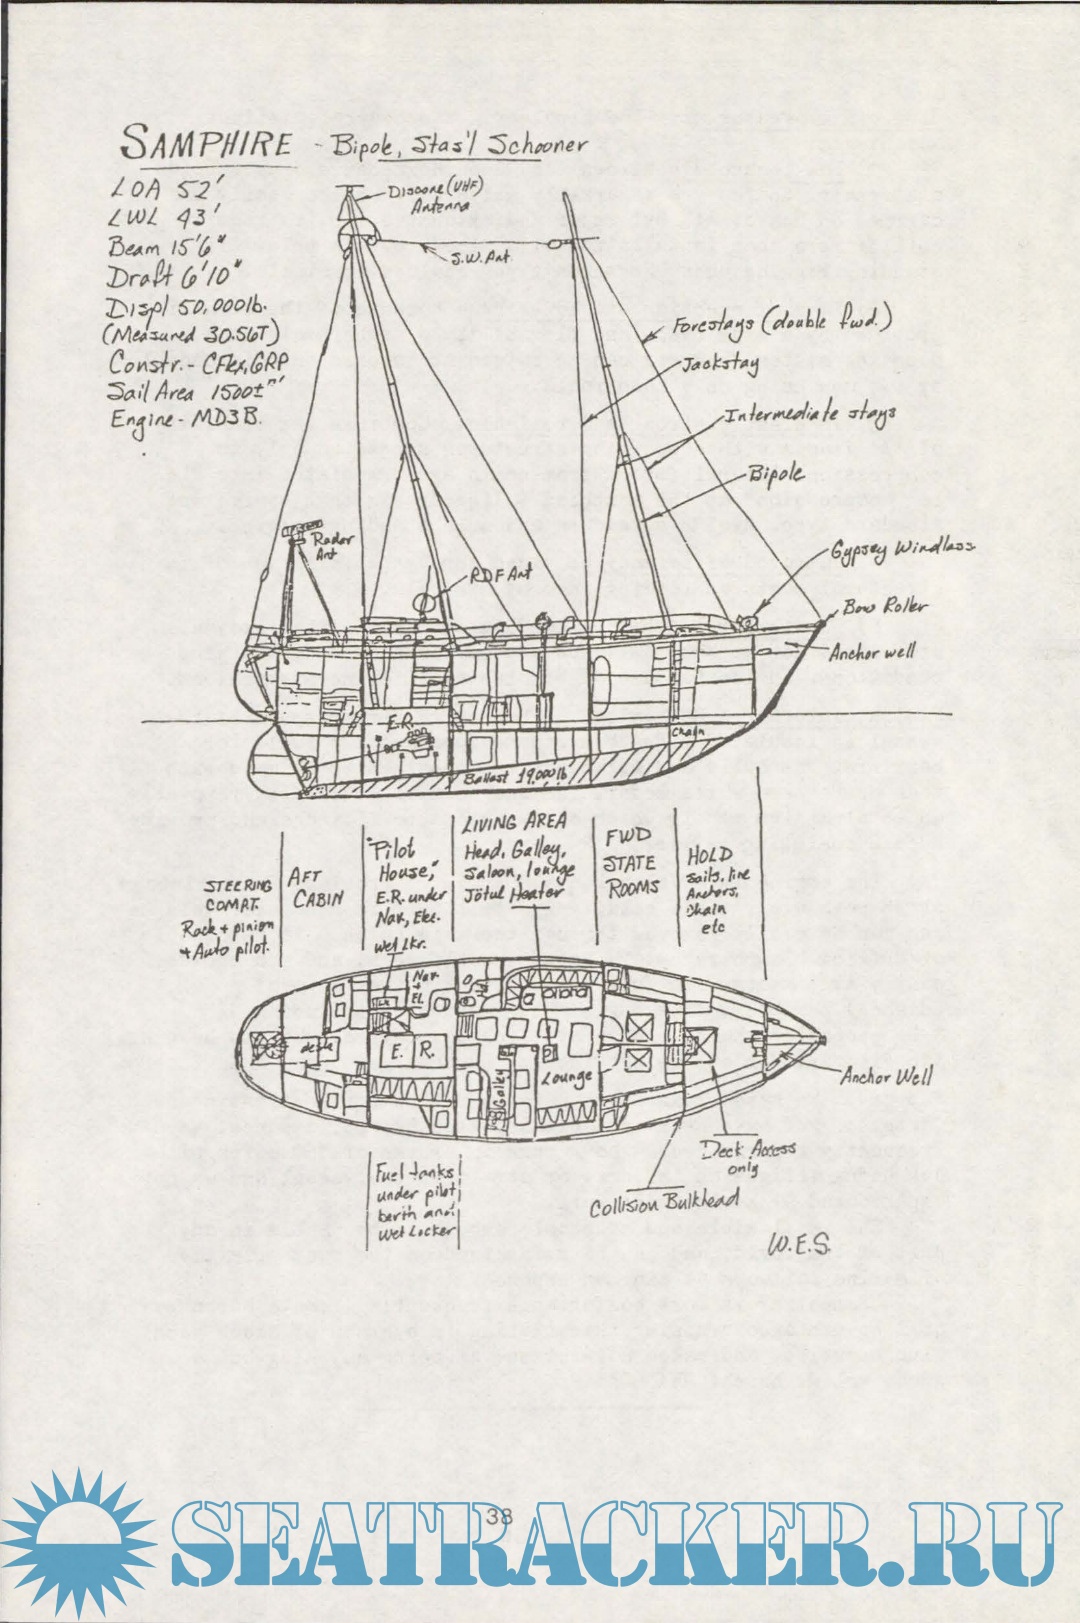 SAMPHIRE - Bipole, Stas'l Schooner
LOA 52'
LWL 43'
Beam 15'6"
Draft 6'10"
Displ 50,000lb.
(Measured 30.56T)
Constr.- CFlex, GRP
Sail Area 1500±
Engine - MD3B.
Discone (VHF)
Antenna
S.W. Ant.
Forestays (double fwd.)
Jackstay
Intermediate stays
Bipole
Gypsey Windlass
Radar
Ant
RDF Ant
Bow Roller
Anchor well
E.R.
Chain
Ballast 19,000 lb
STEERING
COMPT.
Rack + pinion
+ Auto pilot.
AFT
CABIN
"Pilot
House,"
E.R. under
Nav, Elec.
Wet Lkr.
LIVING AREA
Head, Galley,
Saloon, lounge
Jötul Heater
FWD
STATE
ROOMS
HOLD
Sails, line
Anchors,
Chain
etc
Nav.
+
El.
Hd.
desk
E. R.
Galley
Lounge
Anchor Well
Deck Access
only
Collision Bulkhead
Fuel tanks
under pilot
berth and
Wet Locker
W.E.S.
38
SEATRACKER.RU